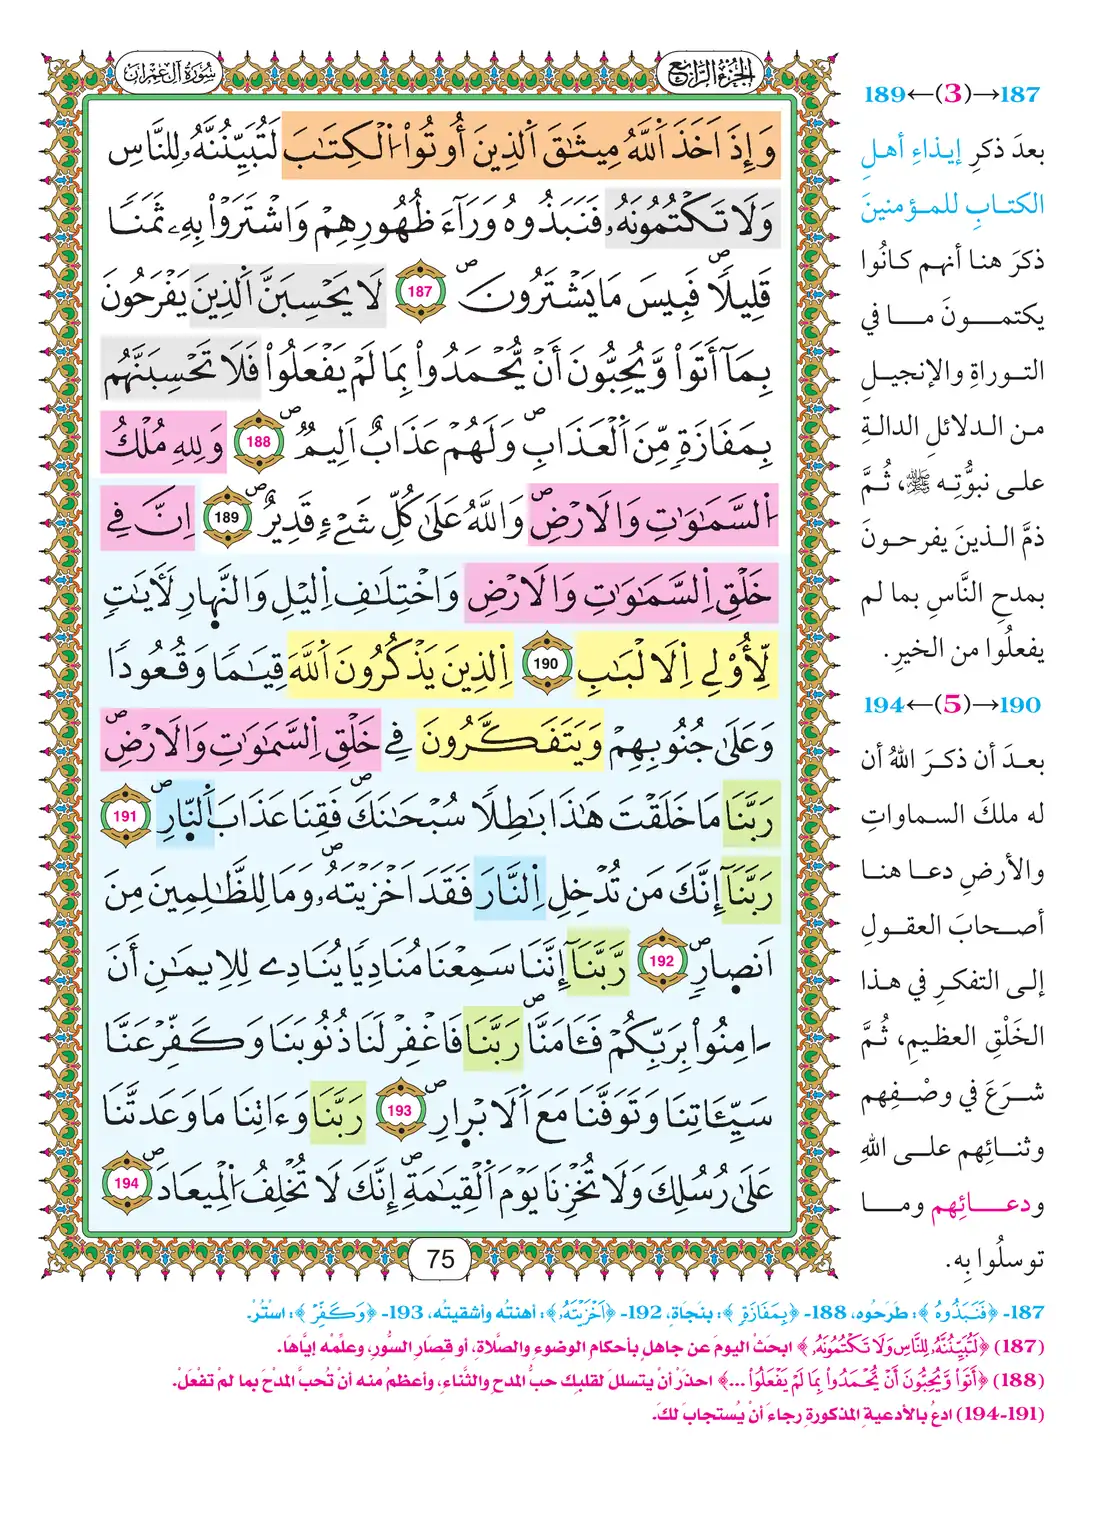 الجزء الرابع
سورة آل عمران
وَإِذَ اَخَذَ اَللَّهُ مِيثَٰقَ اَلذِينَ أُوتُواْ اُلْكِتَٰبَ لَتُبَيِّنُنَّهُۥ لِلنَّاسِ
وَلَا تَكْتُمُونَهُۥ فَنَبَذُوهُ وَرَآءَ ظُهُورِهِمْ وَاشْتَرَوْاْ بِهِۦ ثَمَنًا
قَلِيلًا فَبِيسَ مَا يَشْتَرُونَ 187 لَا يَحْسِبَنَّ اَلذِينَ يَفْرَحُونَ
بِمَآ أَتَواْ وَّيُحِبُّونَ أَنْ يُّحْمَدُواْ بِمَا لَمْ يَفْعَلُواْ فَلَا تَحْسِبَنَّهُم
بِمَفَازَةٍ مِّنَ اَلْعَذَابِ وَلَهُمْ عَذَابٌ اَلِيمٌ 188 وَلِلهِ مُلْكُ
اُلسَّمَٰوَٰتِ وَالَارْضِ وَاللَّهُ عَلَىٰ كُلِّ شَيْءٍ قَدِيرٌ 189 اِنَّ فِے
خَلْقِ اِلسَّمَٰوَٰتِ وَالَارْضِ وَاخْتِلَٰفِ اِليْلِ وَالنَّهارِ لَأٓيَٰتٍ
لِّأُوْلِے اِلَالْبَٰبِ 190 اِلذِينَ يَذْكُرُونَ اَللَّهَ قِيَٰمًا وَقُعُودًا
وَعَلَىٰ جُنُوبِهِمْ وَيَتَفَكَّرُونَ فِے خَلْقِ اِلسَّمَٰوَٰتِ وَالَارْضِ
رَبَّنَا مَا خَلَقْتَ هَٰذَا بَٰطِلًا سُبْحَٰنَكَ فَقِنَا عَذَابَ اَلنّارِ 191
رَبَّنَآ إِنَّكَ مَن تُدْخِلِ اِلنَّارَ فَقَدَ اَخْزَيْتَهُۥ وَمَا لِلظَّٰلِمِينَ مِنَ
اَنصارٍ 192 رَّبَّنَآ إِنَّنَا سَمِعْنَا مُنَادِيًا يُنَادِے لِلِايمَٰنِ أَنَ
اٰمِنُواْ بِرَبِّكُمْ فَـَٔامَنَّا رَبَّنَا فَاغْفِرْ لَنَا ذُنُوبَنَا وَكَفِّرْ عَنَّا
سَيِّـَٔاتِنَا وَتَوَفَّنَا مَعَ اَلَابْرارِ 193 رَبَّنَا وَءَاتِنَا مَا وَعَدتَّنَا
عَلَىٰ رُسُلِكَ وَلَا تُخْزِنَا يَوْمَ اَلْقِيَٰمَةِ إِنَّكَ لَا تُخْلِفُ اُلْمِيعَادَ 194
75
187→(3)←189
بعدَ ذكرِ إيذاءِ أهلِ
الكتابِ للمؤمنينَ
ذكرَ هنا أنهم كانُوا
يكتمونَ ما في
التوراةِ والإنجيلِ
من الدلائلِ الدالةِ
على نبوُّتِه ﷺ، ثُمَّ
ذمَّ الذينَ يفرحونَ
بمدحِ النَّاسِ بما لم
يفعلُوا من الخيرِ.
190→(5)←194
بعدَ أن ذكرَ اللهُ أن
له ملكَ السماواتِ
والأرضِ دعا هنا
أصحابَ العقولِ
إلى التفكرِ في هذا
الخَلْقِ العظيمِ، ثُمَّ
شرعَ في وصْفِهم
وثنائِهم على اللهِ
ودعائِهم وما
توسلُوا بِه.
187- ﴿فَنَبَذُوهُ﴾: طَرَحُوه، 188- ﴿بِمَفَازَةٍ﴾: بنَجاةٍ، 192- ﴿اَخْزَيْتَهُۥ﴾: أهنتُه وأشقيتُه، 193- ﴿وَكَفِّرْ﴾: استُرْ.
(187) ﴿لَتُبَيِّنُنَّهُۥ لِلنَّاسِ وَلَا تَكْتُمُونَهُۥ﴾ ابحَثْ اليومَ عن جاهلٍ بأحكامِ الوضوءِ والصَّلاةِ، أو قصَارِ السُّورِ، وعلِّمْه إيَّاهَا.
(188) ﴿أَتَواْ وَّيُحِبُّونَ أَنْ يُّحْمَدُواْ بِمَا لَمْ يَفْعَلُواْ ...﴾ احذرْ أنْ يتسللَ لقلبِك حبُّ المدحِ والثَّناءِ، وأعظمُ منه أنْ تُحبَّ المدْحَ بما لم تفعَلْ.
(191-194) ادعُ بالأدعيةِ المذكورةِ رجاءَ أنْ يُستجابَ لكَ.